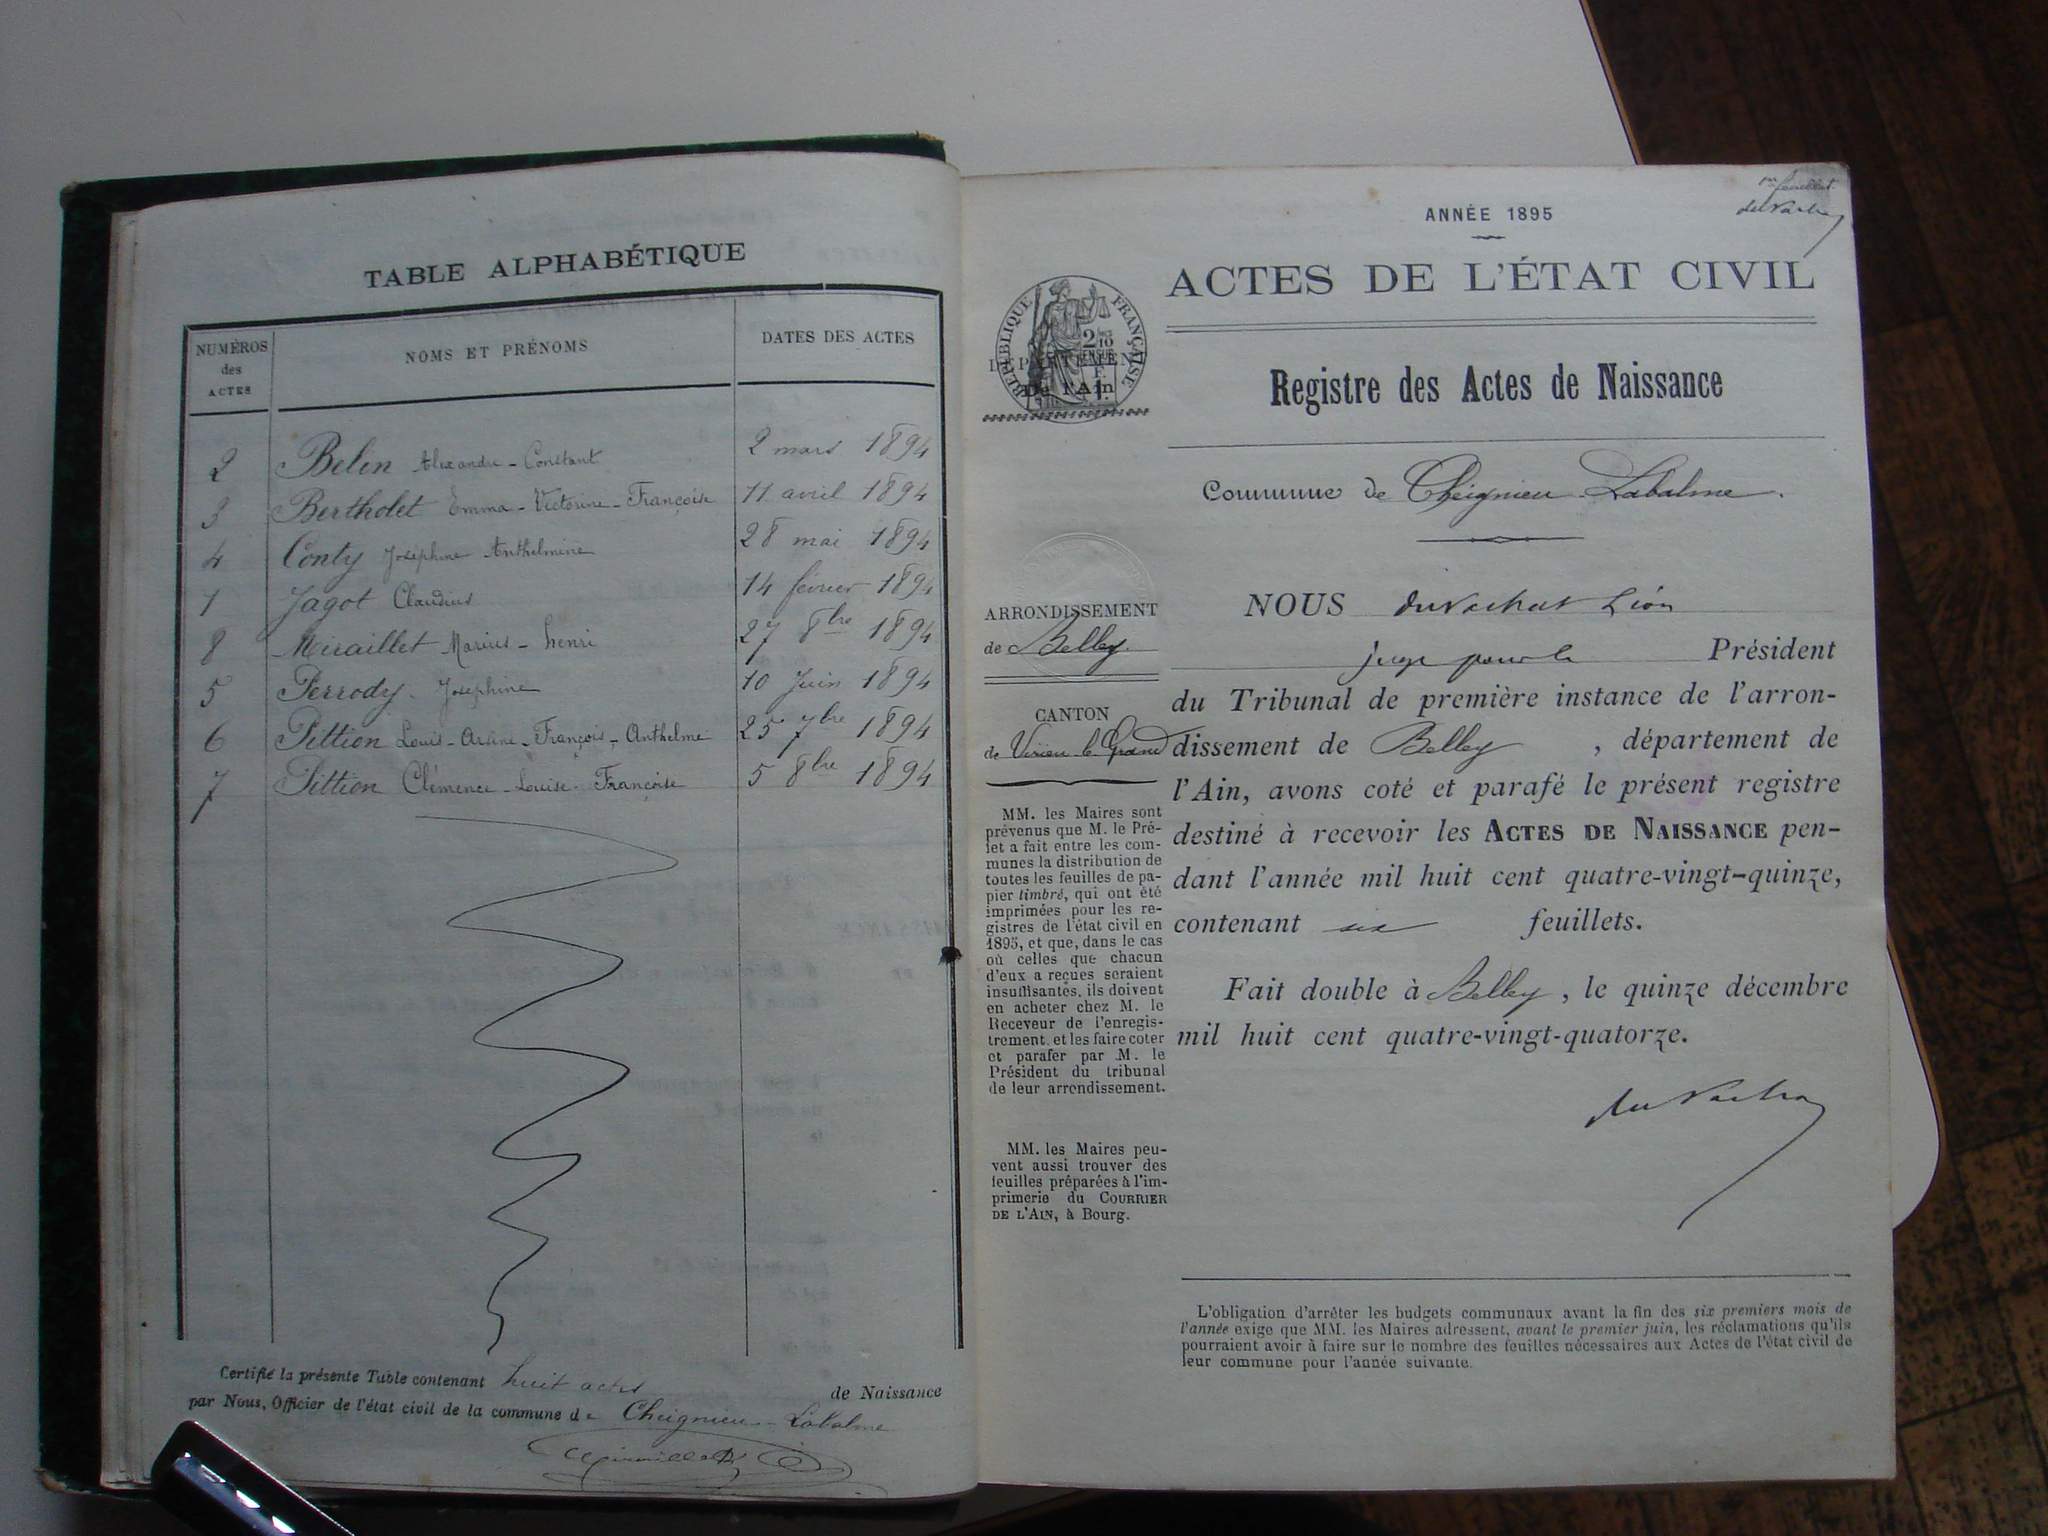 TABLE ALPHABÉTIQUE
NUMÉROS des ACTES
NOMS ET PRÉNOMS
DATES DES ACTES
2 Belin Alexandre - Constant 2 mars 1894
3 Bertholet Emma - Victorine - Françoise 11 avril 1894
4 Conty Joséphine Anthelmine 28 mai 1894
1 Jagot Claudius 14 février 1894
8 Miraillet Marius - henri 27 8bre 1894
5 Perrody Joséphine 10 Juin 1894
6 Pittion Louis - Arsène - François - Anthelme 25 7bre 1894
7 Pittion Clémence - Louise - Françoise 5 8bre 1894
Certifié la présente Table contenant huit actes de Naissance
par Nous, Officier de l'état civil de la commune de Cheignieu - Labalme
ANNÉE 1895
ACTES DE L'ÉTAT CIVIL
RÉPUBLIQUE FRANÇAISE
DÉPARTEMENT
De l'Ain
Registre des Actes de Naissance
Commune de Cheignieu - Labalme.
ARRONDISSEMENT
de Belley.
CANTON
de Virieu-le-Grand
MM. les Maires sont
prévenus que M. le Pré-
fet a fait entre les com-
munes la distribution de
toutes les feuilles de pa-
pier timbré, qui ont été
imprimées pour les re-
gistres de l'état civil en
1895, et que, dans le cas
où celles que chacun
d'eux a reçues seraient
insuffisantes, ils doivent
en acheter chez M. le
Receveur de l'enregis-
trement, et les faire coter
et parafer par M. le
Président du tribunal
de leur arrondissement.
MM. les Maires peu-
vent aussi trouver des
feuilles préparées à l'im-
primerie du COURRIER
DE L'AIN, à Bourg.
NOUS Léon
juge pour le Président
du Tribunal de première instance de l'arron-
dissement de Belley, département de
l'Ain, avons coté et parafé le présent registre
destiné à recevoir les ACTES DE NAISSANCE pen-
dant l'année mil huit cent quatre-vingt-quinze,
contenant six feuillets.
Fait double à Belley, le quinze décembre
mil huit cent quatre-vingt-quatorze.
L'obligation d'arrêter les budgets communaux avant la fin des six premiers mois de
l'année exige que MM. les Maires adressent, avant le premier juin, les réclamations qu'ils
pourraient avoir à faire sur le nombre des feuilles nécessaires aux Actes de l'état civil de
leur commune pour l'année suivante.